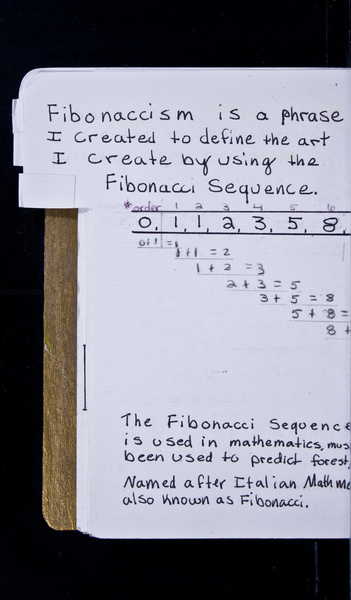 Fibonaccism is a phrase
I created to define the art
I create by using the
Fibonacci Sequence.
*order 1 2 3 4 5 6
0, 1, 1, 2, 3, 5, 8,
0+1=1
1+1 = 2
1 + 2 = 3
2 + 3 = 5
3 + 5 = 8
5 + 8 =
8 +
The Fibonacci Sequence
is used in mathematics, mus
been used to predict forest,
Named after Italian Mathme
also known as Fibonacci.